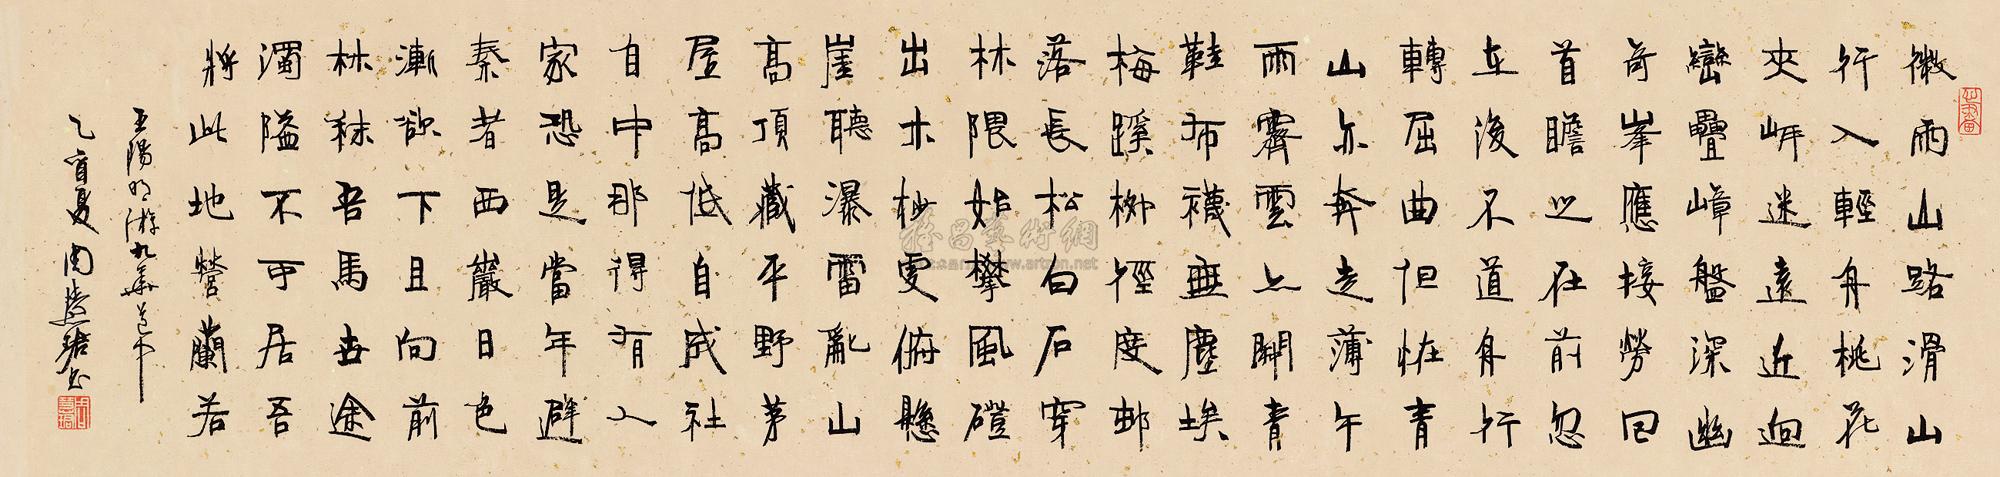 微雨山路滑山
行入輕舟桃花
夾岍迷遠近迴
巒疊嶂盤深幽
奇峯應接勞回
首瞻之在前忽
在後不道舟行
轉屈曲但怪青
山亦奔走薄午
雨霽雲上開青
鞋布襪無塵埃
梅蹊柳徑度邨
落長松白石穿
林隈始攀風磴
出木杪更俯懸
崖聽瀑雷亂山
高頂藏平野茅
屋高低自成社
自中那得有人
家恐是當年避
秦者西巖日色
漸欲下且向前
林秣吾馬世途
濁隘不可居吾
將此地營蘭若
王陽明游九華道中
乙酉夏周慧珺書